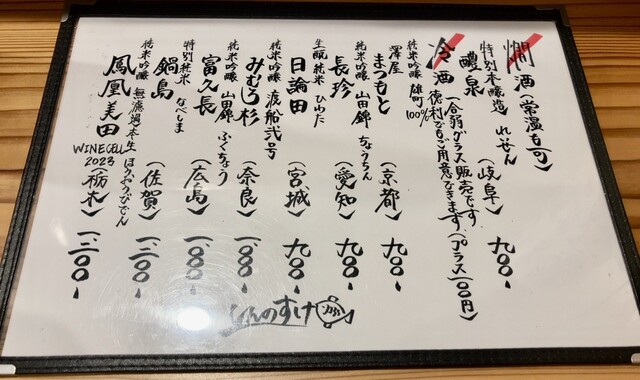 燗酒(常温も可)
特別本醸造 れいせん
醴泉 (岐阜) 九〇〇、
冷酒 (一合弱グラス販売です 徳利でもご用意できます(プラス一〇〇円)
純米吟醸 雄町100%
澤屋まつもと (京都) 九〇〇、
純米吟醸 山田錦 ちょうちん
長珍 (愛知) 九〇〇、
生酛純米 ひわた
日輪田 (宮城) 九〇〇、
純米吟醸 渡船弐号
みむろ杉 (奈良) 一、〇〇〇、
純米吟醸 山田錦 ふくちょう
富久長 (広島) 一、〇〇〇、
特別純米 なべしま
鍋島 (佐賀) 一、三〇〇、
純米吟醸 無濾過本生 ほうおうびでん
鳳凰美田 WINE CELL 2023 (栃木) 一、三〇〇、
しんのすけ